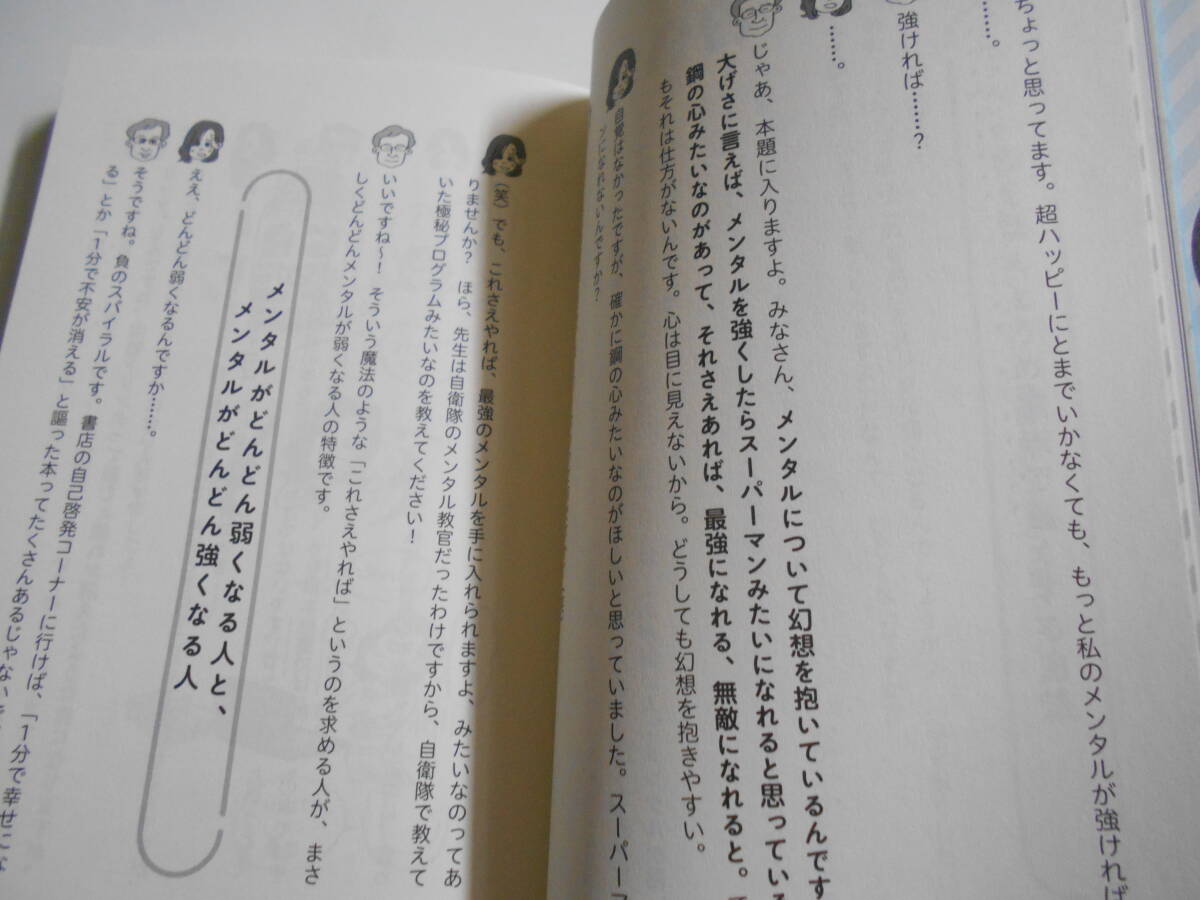 ちょっと思ってます。超ハッピーにとまでいかなくても、もっと私のメンタルが強ければ
……。
強ければ……？
……。
じゃあ、本題に入りますよ。みなさん、メンタルについて幻想を抱いているんです
大げさに言えば、メンタルを強くしたらスーパーマンみたいになれると思っている
鋼の心みたいなのがあって、それさえあれば、最強になれる、無敵になれると。
もそれは仕方がないんです。心は目に見えないから。どうしても幻想を抱きやすい。
自覚はなかったですが、確かに鋼の心みたいなのがほしいと思っていました。スーパーマ
ンになれないんですか？
（笑）でも、これさえやれば、最強のメンタルを手に入れられますよ、みたいなのってあ
りませんか？　ほら、先生は自衛隊のメンタル教官だったわけですから、自衛隊で教えて
いた極秘プログラムみたいなのを教えてください！
いいですね〜！　そういう魔法のような「これさえやれば」というのを求める人が、まさ
しくどんどんメンタルが弱くなる人の特徴です。
メンタルがどんどん弱くなる人と、
メンタルがどんどん強くなる人
ええ、どんどん弱くなるんですか……。
そうですね。負のスパイラルです。書店の自己啓発コーナーに行けば、「1分で幸せにな
る」とか「1分で不安が消える」と謳った本ってたくさんあるじゃない